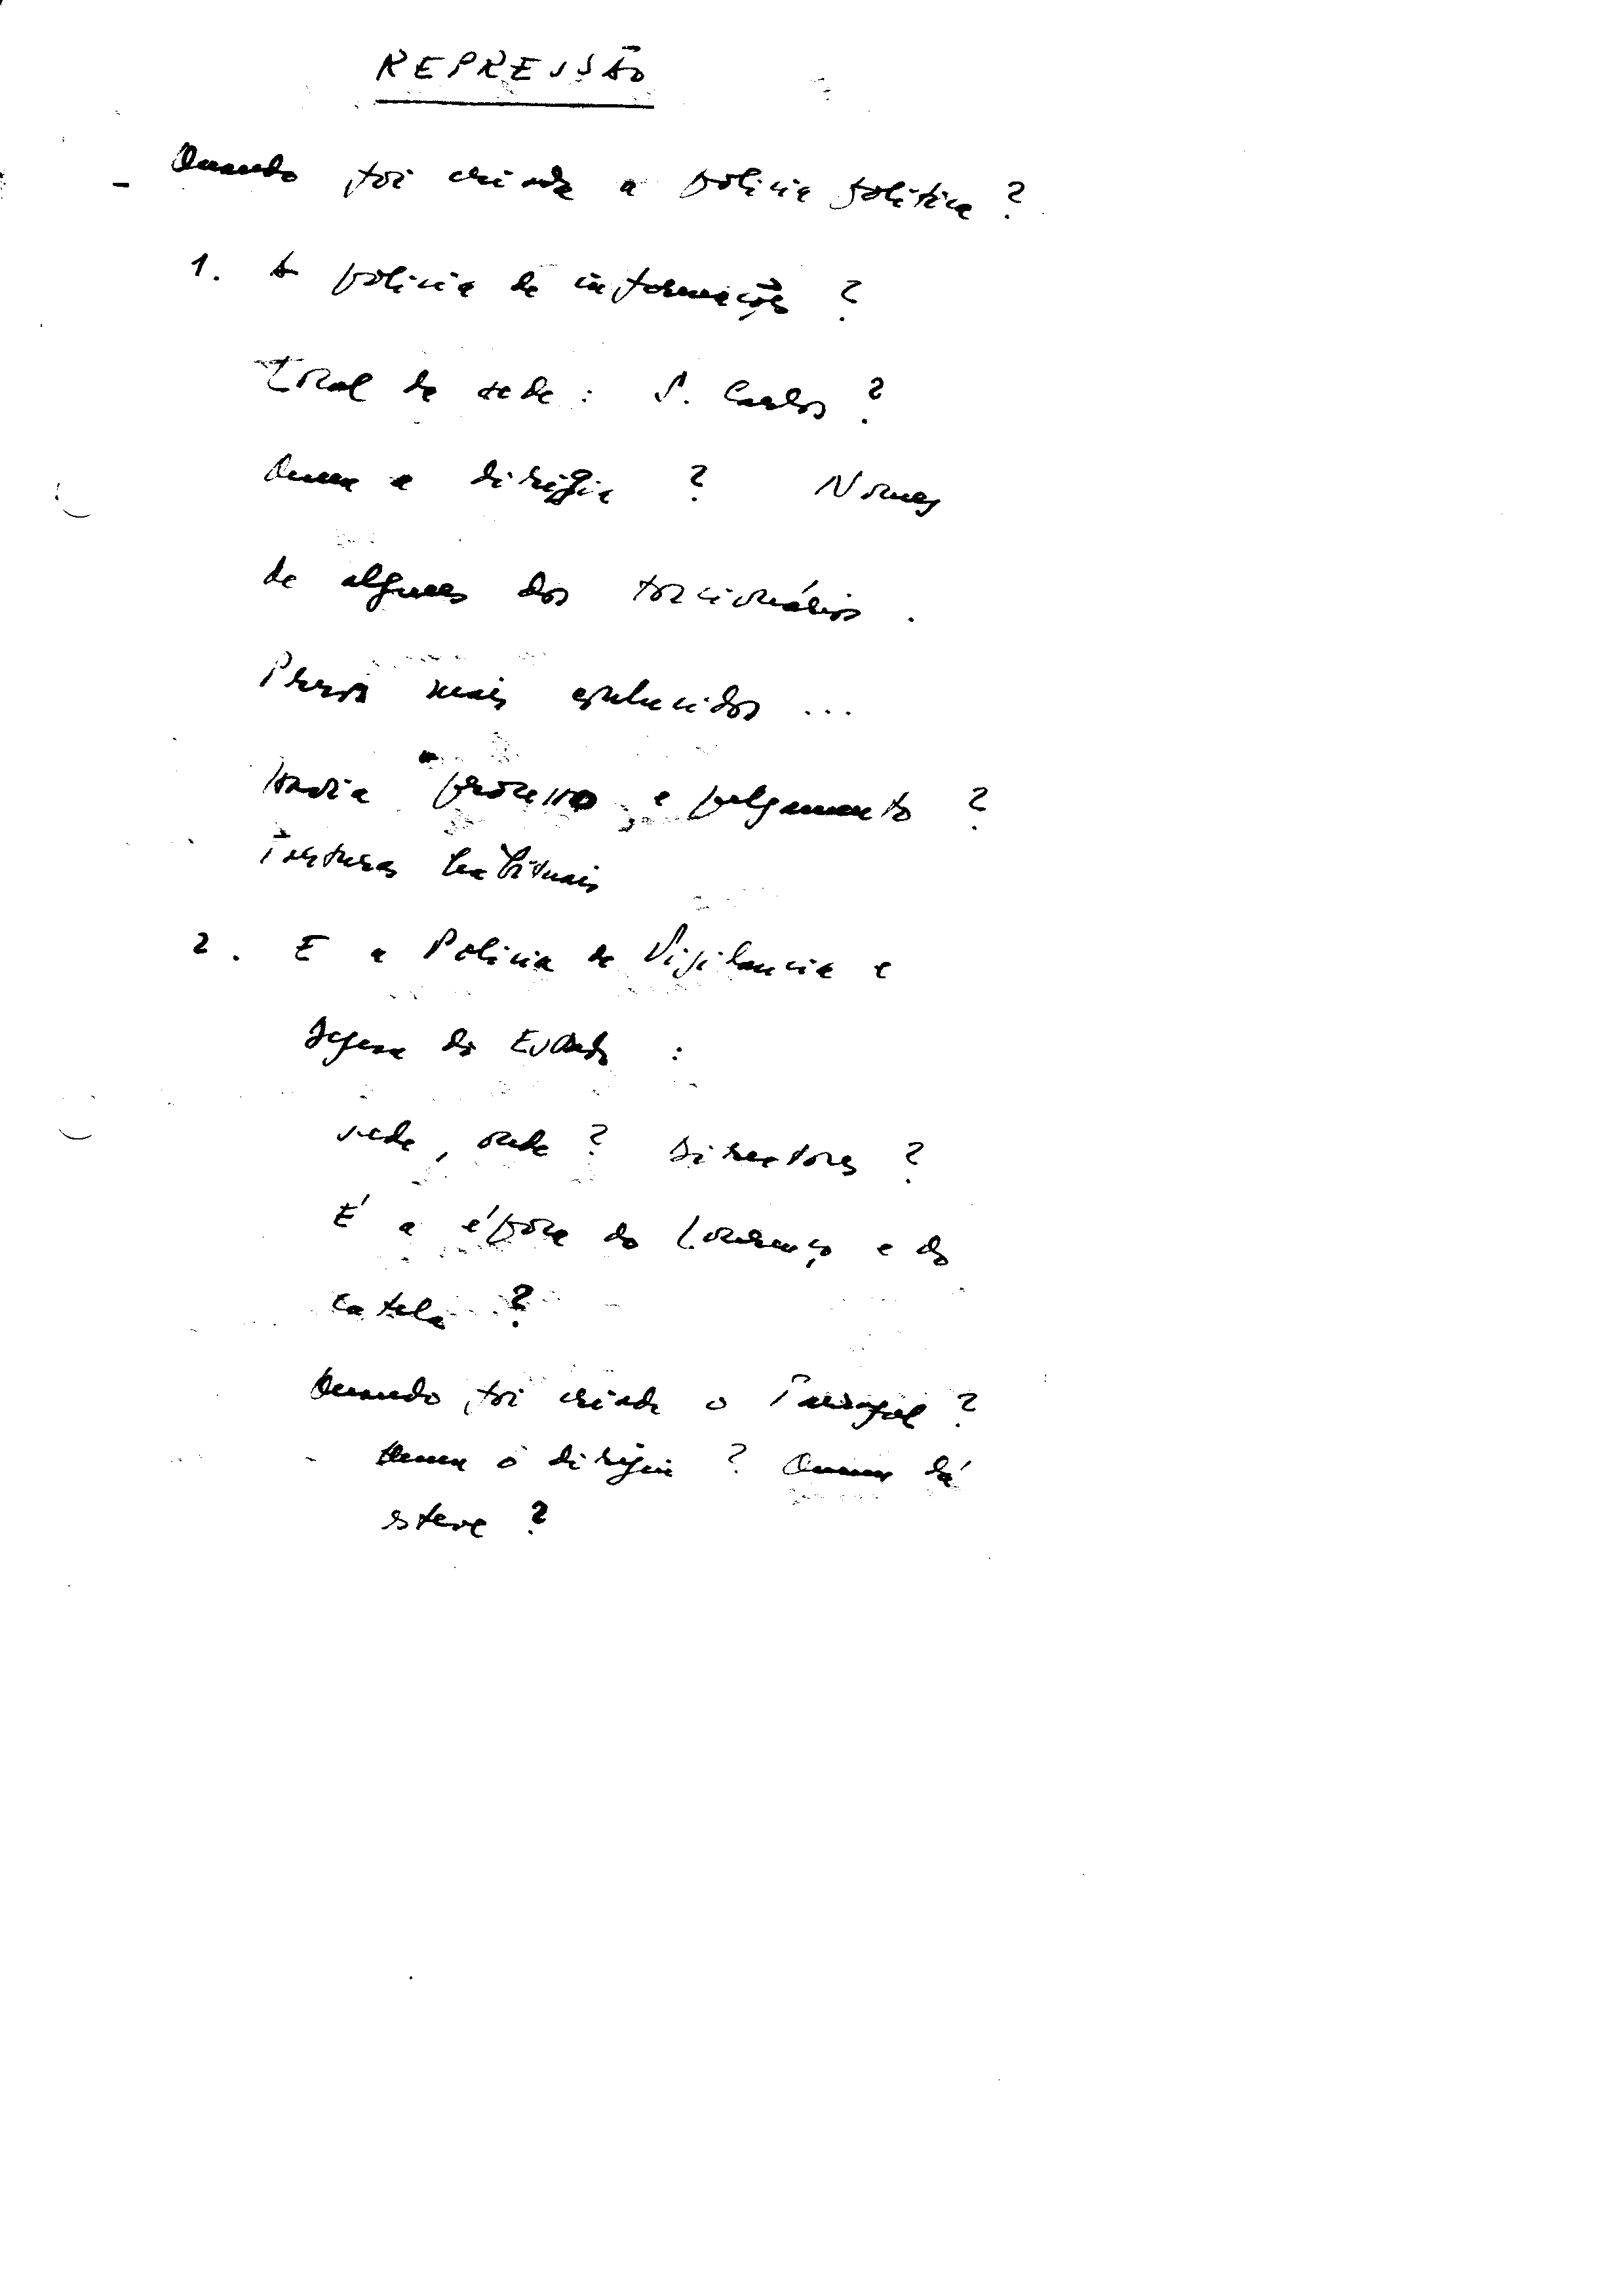 REPRESSÃO
- Quando foi criada a polícia política ?
1. A polícia de informações ?
Local da sede : S. Carlos ?
Quem a dirigia ? Nomes
de alguns dos torcionários .
Presos mais conhecidos ...
Havia processo e julgamento ?
Torturas habituais
2. E a Polícia de Vigilancia e
Defesa do Estado :
sede, onde ? Directores ?
É a época do Lourenço e do
Catela ?
Quando foi criado o Tarrafal ?
- Quem o dirigia ? Quem lá
esteve ?